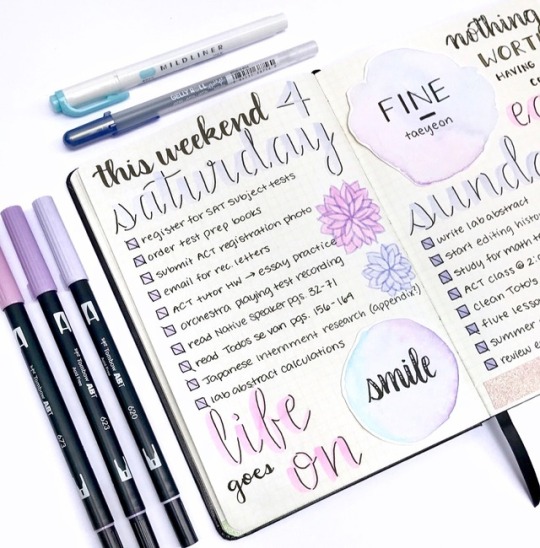 MILDLINER
GELLY ROLL
this weekend 4
saturday
register for SAT subject tests
order test prep books
submit ACT registration photo
email for rec. letters
ACT tutor HW → essay practice
orchestra playing test recording
read Native Speaker pgs. 32-71
read Todos se van pgs. 156-169
Japanese Internment research (appendix?)
lab abstract calculations
life
goes on
smile
FINE
taeyeon
nothing
WORT
HAVING
sunda
write lab abstract
start editing histo
study for math t
ACT class @ 2:
clean Toto's
flute lesso
summer
review e
Tombow ABT
673
Tombow ABT
623
Tombow ABT
620